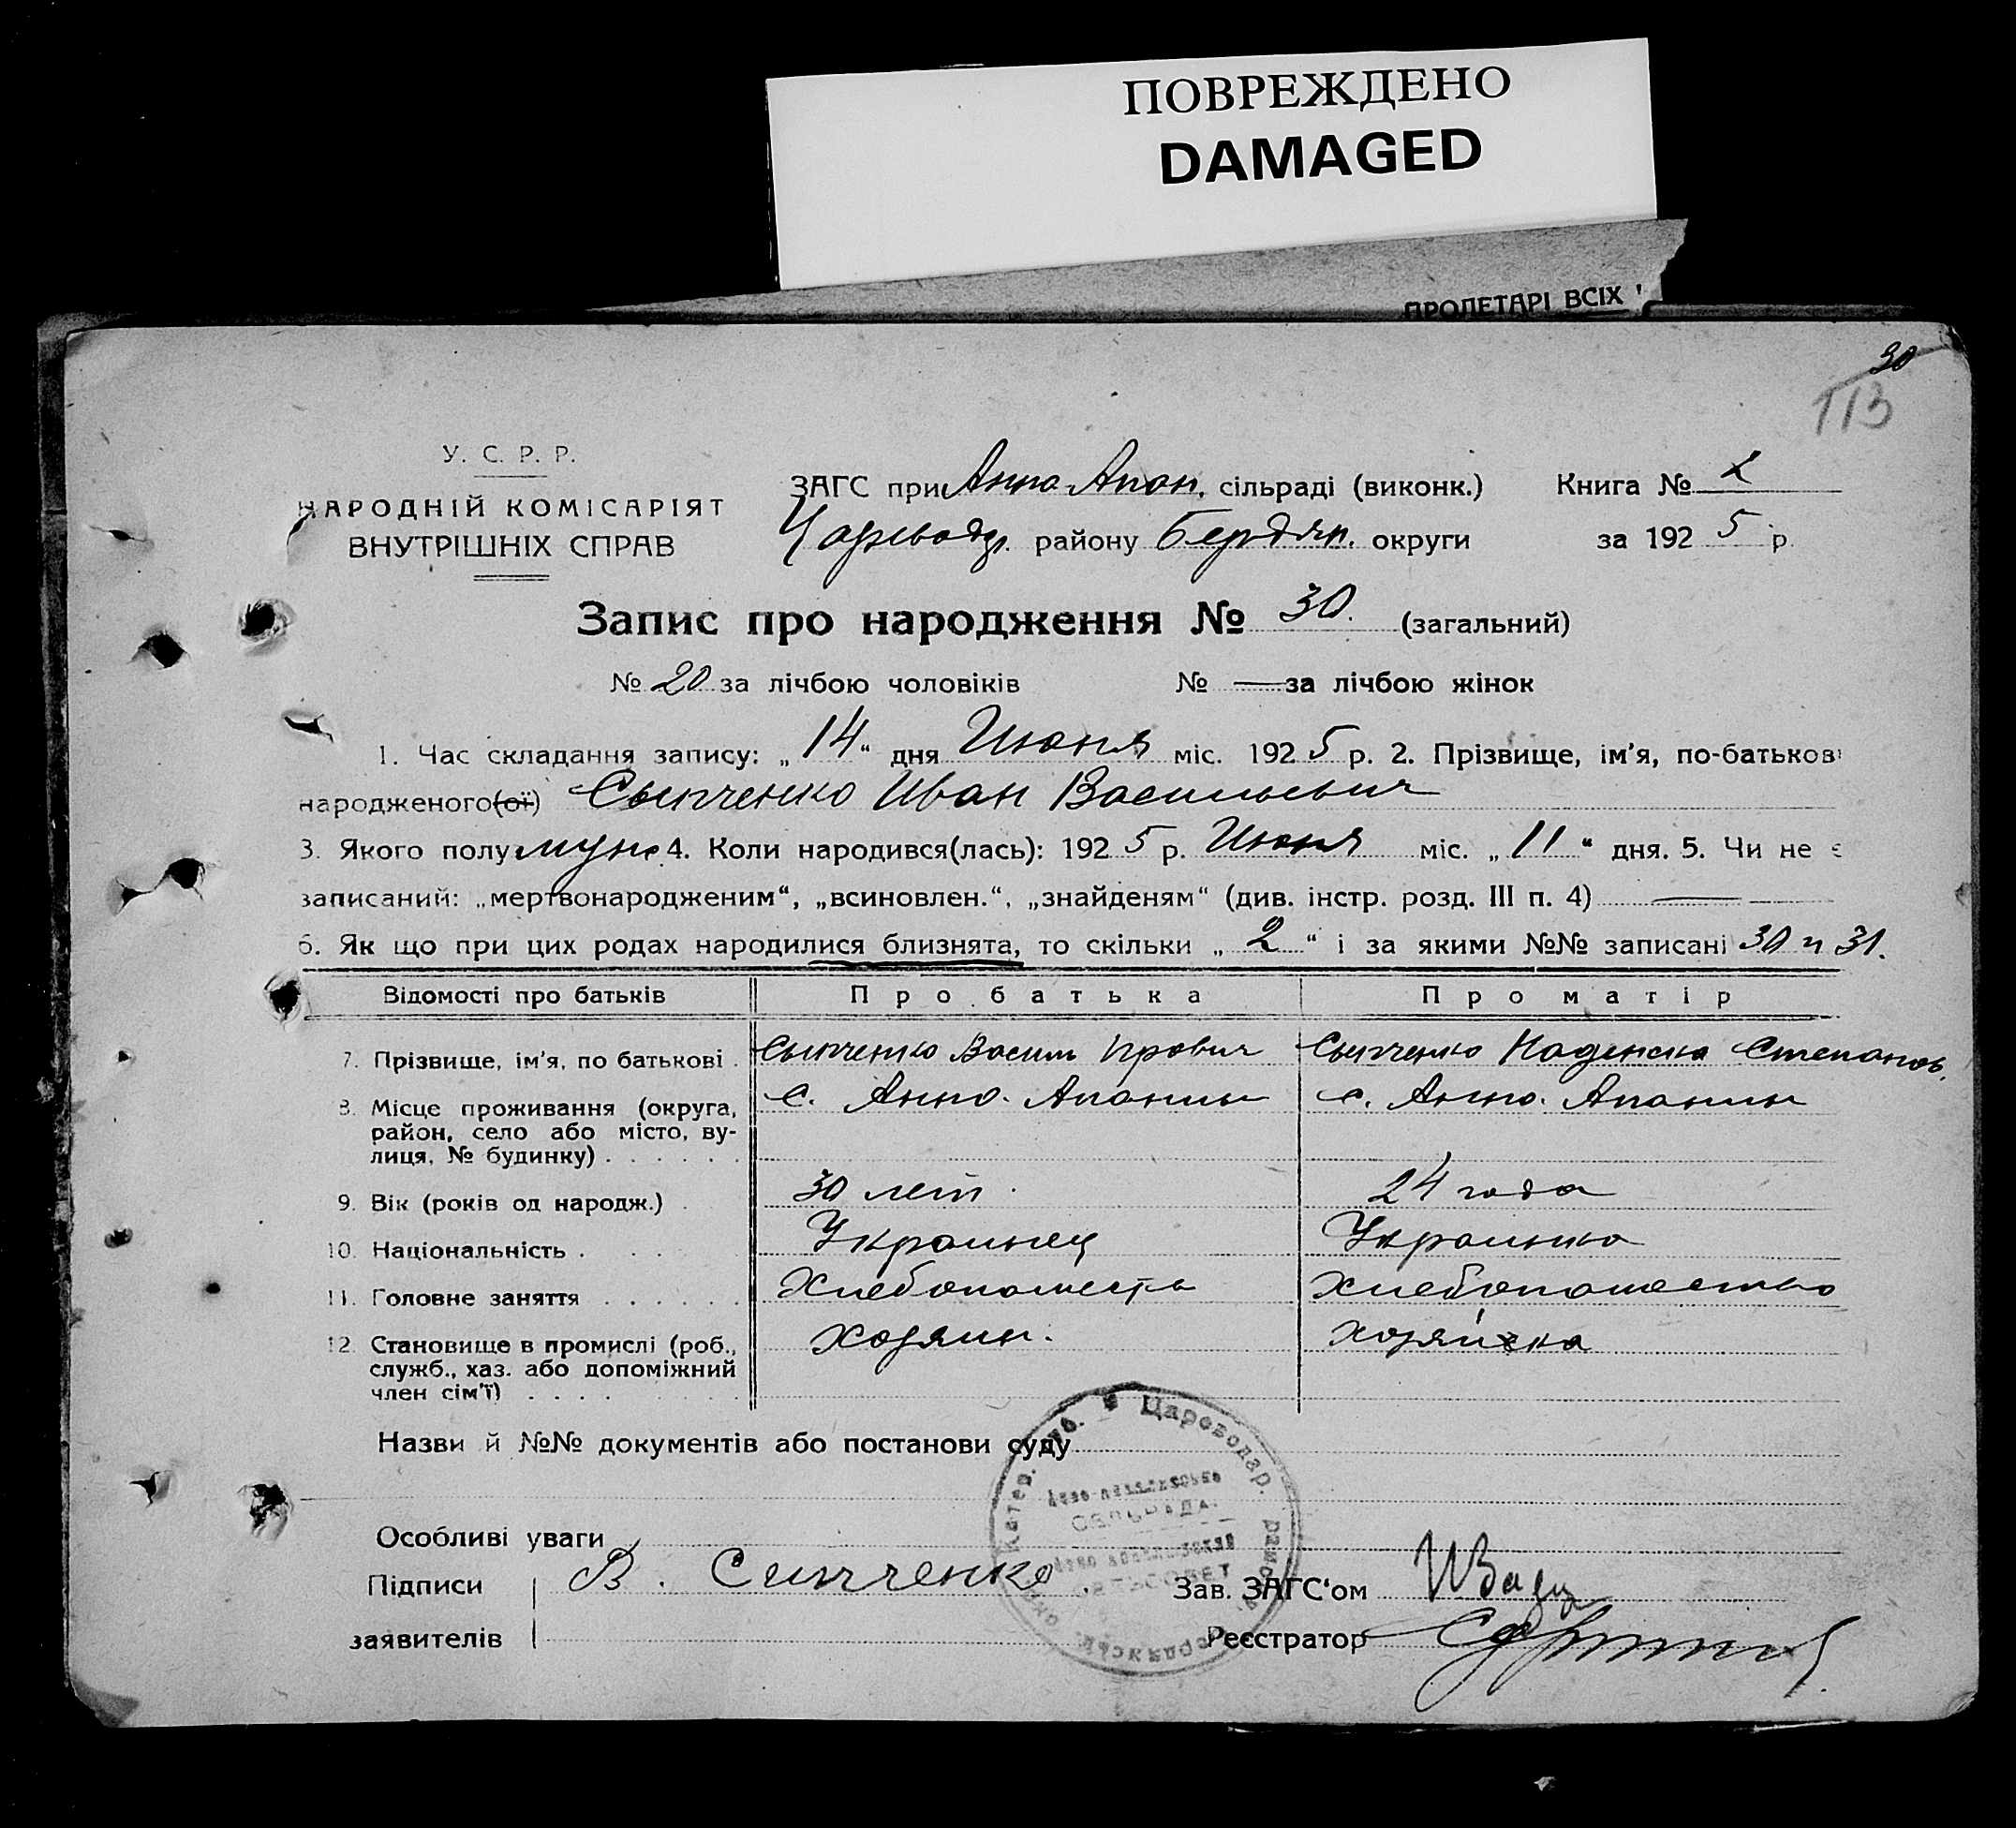 ПОВРЕЖДЕНО
DAMAGED
ПРОЛЕТАРІ ВСІХ
30
113
У. С. Р. Р.
НАРОДНІЙ КОМІСАРІЯТ
ВНУТРІШНІХ СПРАВ
ЗАГС при Анно Апан. сільраді (виконк.) Книга № 2
Царевод. району Бердян. округи за 1925 р.
Запис про народження № 30. (загальний)
№ 20 за лічбою чоловіків № — за лічбою жінок
1. Час складання запису: „14“ дня Июня міс. 1925 р. 2. Прізвище, ім’я, по-батькові
народженого(ої) Сыпченко Иван Васильевич
3. Якого полу муж. 4. Коли народився(лась): 1925 р. Июня міс. „11“ дня. 5. Чи не є
записаний: „мертвонародженим“, „всиновлен.“, „знайденям“ (див. інстр. розд. III п. 4) —
6. Як що при цих родах народилися близнята, то скільки „2“ і за якими №№ записані 30 и 31.
Відомості про батьків Про батька Про матір
7. Прізвище, ім’я, по батькові . Сыпченко Васил Прович Сыпченко Надежда Степанов.
8. Місце проживання (округа, с. Анно. Апанли с. Анно. Апанли
район, село або місто, ву-
лиця, № будинку) . . . . . .
9. Вік (років од народж.) . 30 лет. 24 года
10. Національність . . . Украинец Украинка
11. Головне заняття . . . . . . Хлебопашеств Хлебопашество
12. Становище в промислі (роб., Хозяин. Хозяйка
служб., хаз. або допоміжний
член сім’ї) . . . .
Назви й №№ документів або постанови суду
Катер. губ. Цареводар. район
СЕЛЬРАДА
СЕЛЬСОВЕТ
Особливі уваги
Підписи В. Сипченко. Зав. ЗАГС‘ом
заявителів Реєстратор